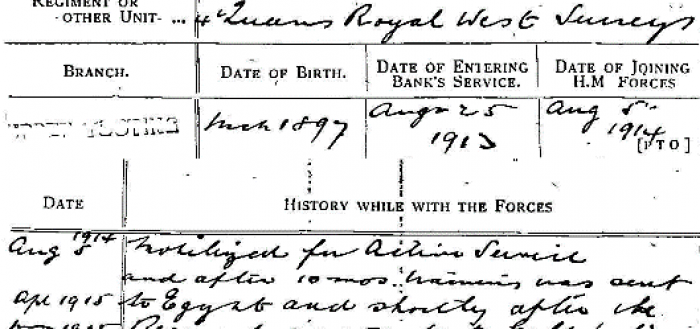 REGIMENT OR
OTHER UNIT- ... 4th Queens Royal West Surreys
BRANCH. DATE OF BIRTH. DATE OF ENTERING BANK'S SERVICE. DATE OF JOINING H.M FORCES
1897 Aug 25 Aug 5th
1913 1914
[P T O]
DATE HISTORY WHILE WITH THE FORCES
Aug 5 1914 Mobilized for Active Service
and after 10 mos. training was sent
Apl 1915 to Egypt and shortly after the